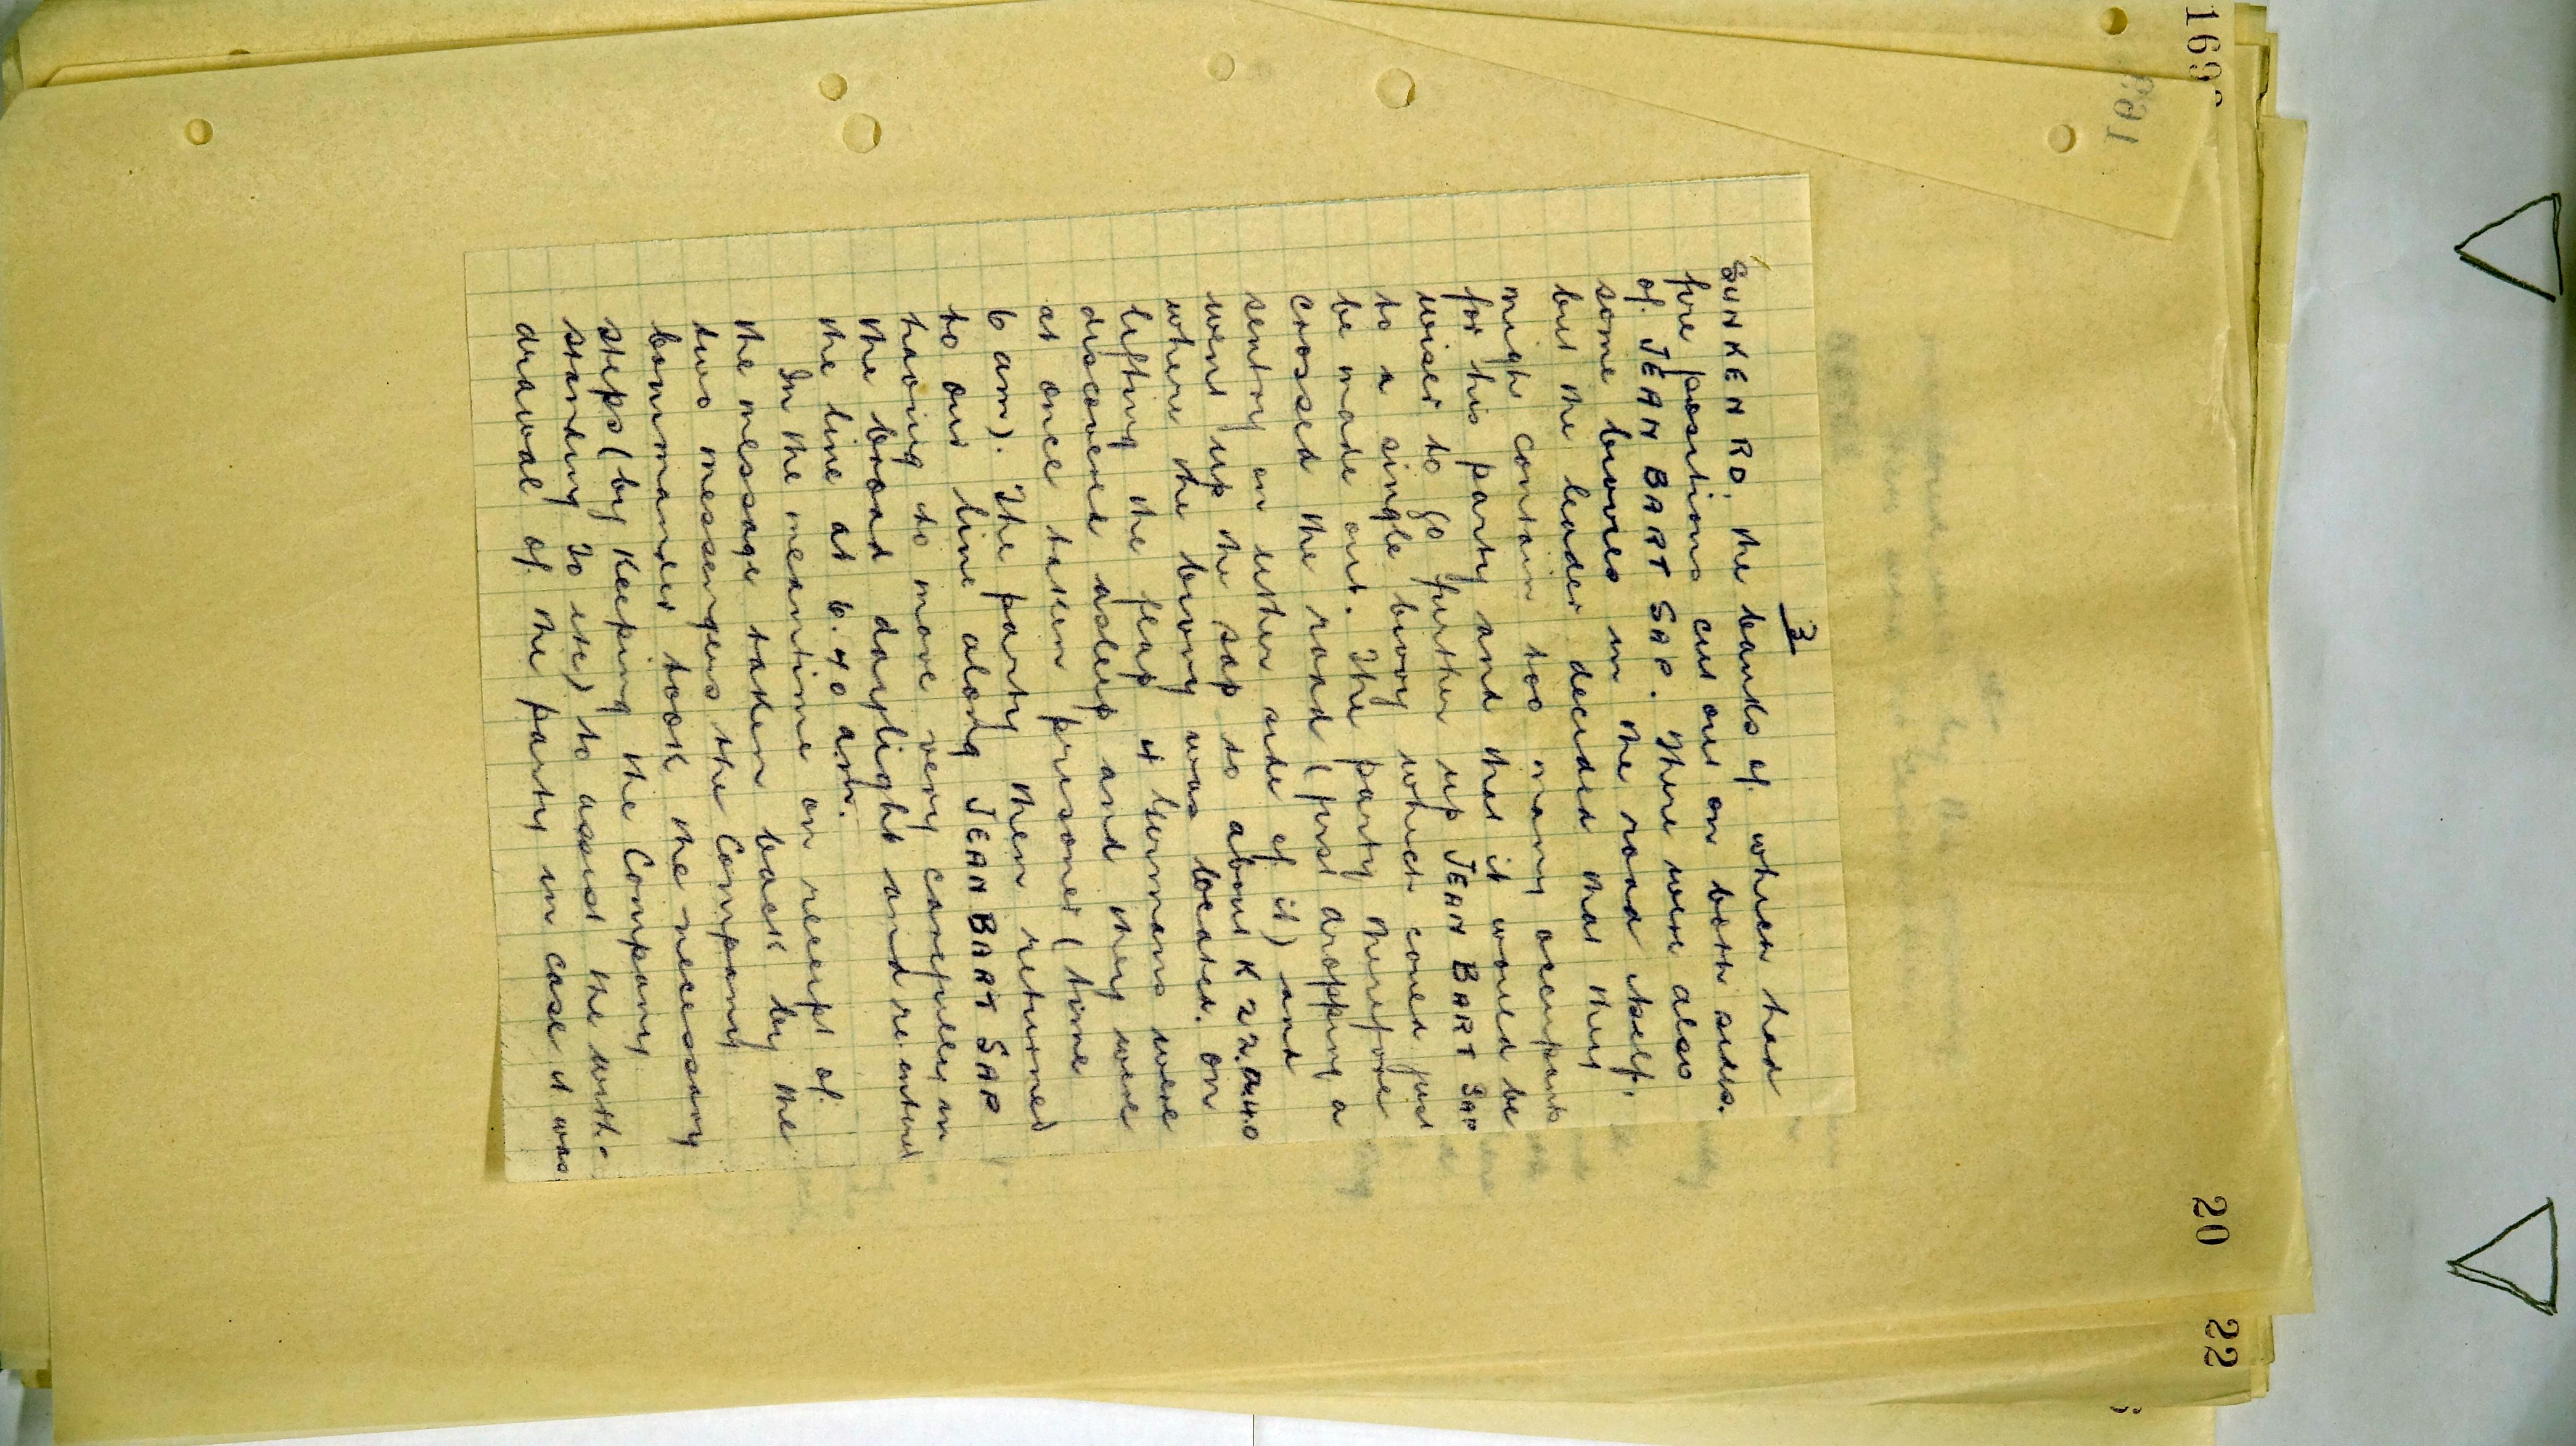 3
SUNKEN RD. the banks of which had
fire positions cut out on both sides.
of JEAN BART SAP. There were also
some bivvies in the road itself,
but the leader decided that they
might contain too many occupants
for his party and that it would be
wiser to go further up JEAN BART SAP
to a single bivvy which could just
be made out. The party therefore
crossed the road (first dropping a
sentry on either side of it) and
went up the sap to about K 22.a.4.0
where the bivvy was located. On
lifting the flap 4 Germans were
discovered asleep and they were
at once taken prisoner (time
6 am). The party then returned
to our line along JEAN BART SAP
having to move very carefully in
the broad daylight and re entered
the line at 6.40 am.
In the meantime on receipt of
the message taken back by the
two messengers the Company
Commander took the necessary
steps (by keeping the Company
standing to etc) to assist the with-
drawal of the party in case it was
169
169
20
22